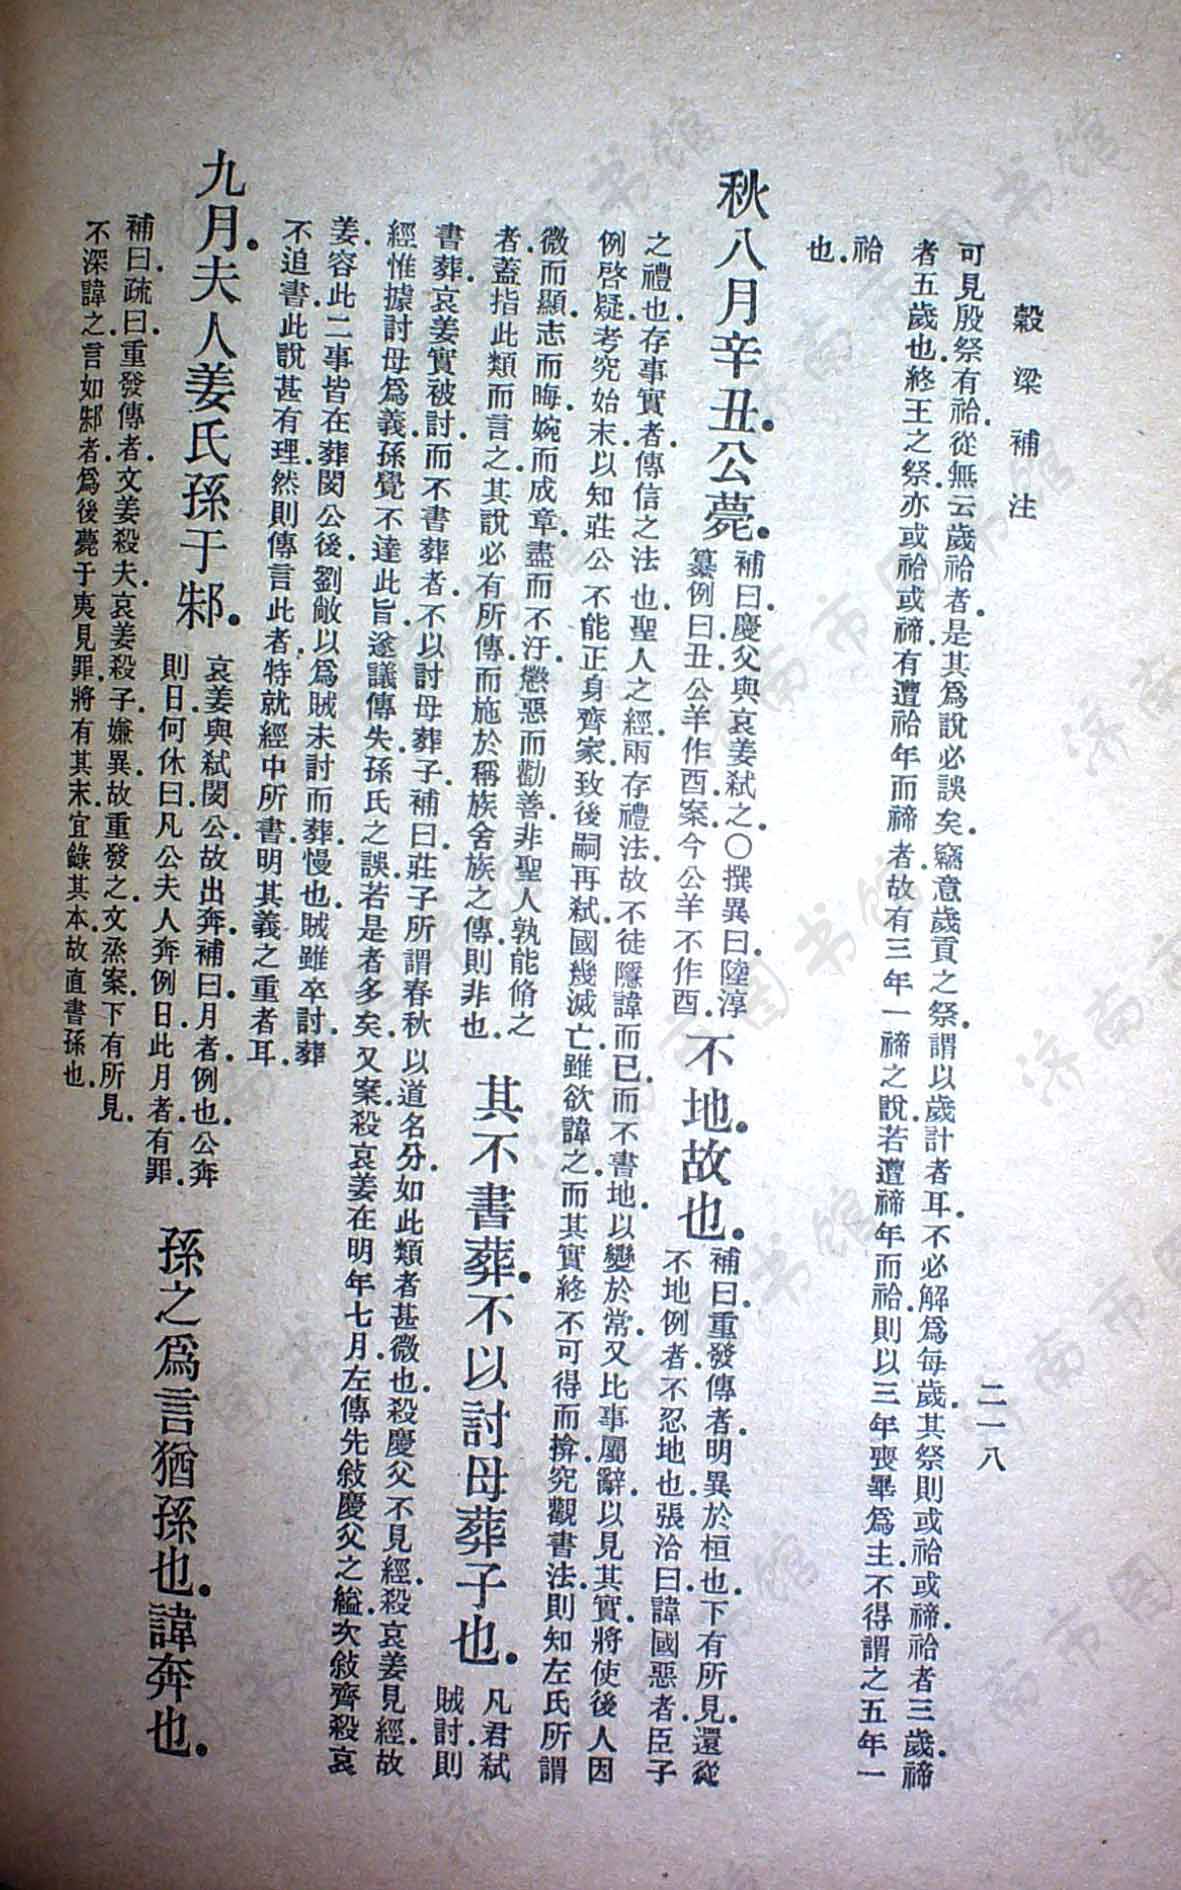 穀梁補注
二一八
可見殷祭有祫.從無云歲祫者.是其爲說必誤矣.竊意歲貢之祭.謂以歲計者耳.不必解爲每歲.其祭則或祫或禘.祫者三歲.禘
者五歲也.終王之祭.亦或祫或禘.有遭祫年而禘者.故有三年一禘之說.若遭禘年而祫.則以三年喪畢爲主.不得謂之五年一
祫
也.
秋八月辛丑.公薨.
補曰.慶父與哀姜弒之.〇撰異曰.陸淳
纂例曰.丑.公羊作酉.案今公羊不作酉.
不地.故也.
補曰.重發傳者.明異於桓也.下有所見.還從
不地例者.不忍地也.張洽曰.諱國惡者.臣子
之禮也.存事實者.傳信之法也.聖人之經.兩存禮法.故不徒隱諱而已.而不書地.以變於常.又比事屬辭.以見其實.將使後人因
例啓疑.考究始末.以知莊公不能正身齊家.致後嗣再弒.國幾滅亡.雖欲諱之.而其實終不可得而揜.究觀書法.則知左氏所謂
微而顯.志而晦.婉而成章.盡而不汙.懲惡而勸善.非聖人孰能脩之
者.蓋指此類而言之.其說必有所傳.而施於稱族舍族之傳.則非也.
其不書葬.不以討母葬子也.
凡君弒
賊討.則
書葬.哀姜實被討而不書葬者.不以討母葬子.補曰.莊子所謂春秋以道名分.如此類者甚微也.殺慶父不見經.殺哀姜見經.故
經惟據討母爲義.孫覺不達此旨.遂議傳失.孫氏之誤.若是者多矣.又案.殺哀姜在明年七月.左傳先敍慶父之縊.次敍齊殺哀
姜.容此二事皆在葬閔公後.劉敞以爲賊未討而葬.慢也.賊雖卒討.葬
不追書.此說甚有理.然則傳言此者.特就經中所書.明其義之重者耳.
九月.夫人姜氏孫于邾.
哀姜與弒閔公.故出奔.補曰.月者.例也.公奔
則日.何休曰.凡公夫人奔例日.此月者.有罪.
孫之爲言猶孫也.諱奔也.
補曰.疏曰.重發傳者.文姜殺夫.哀姜殺子.嫌異.故重發之.文烝案.下有所見.
不深諱之.言如邾者.爲後薨于夷見罪.將有其末.宜錄其本.故直書孫也.
济南市图书馆